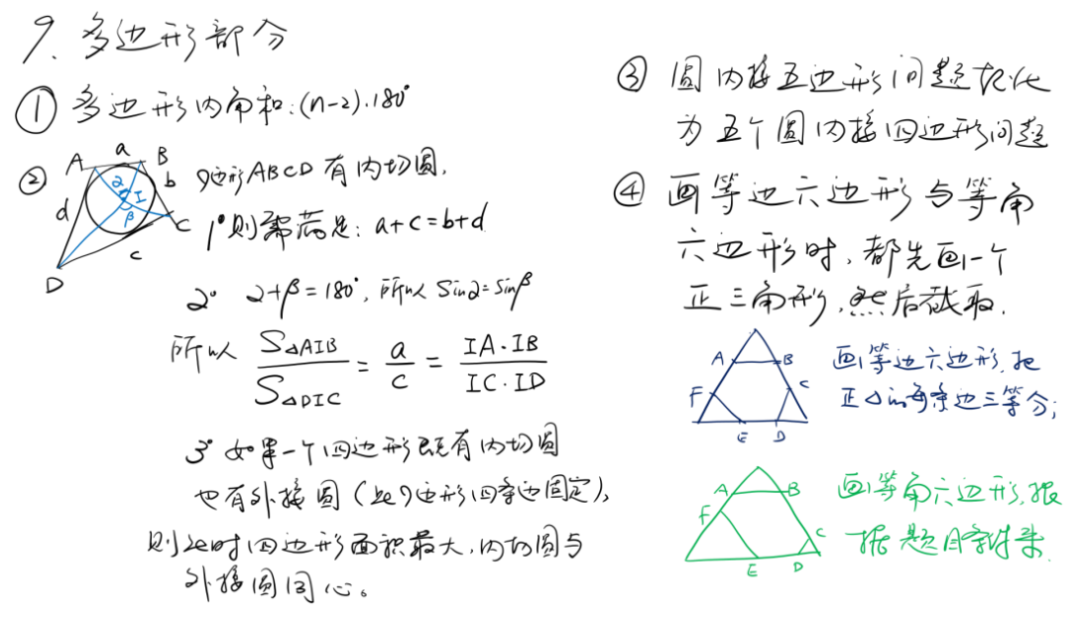 9. 多边形部分
① 多边形内角和:(n-2)·180°
② A a B
b
d
2 I
β
C
c
D
4边形ABCD有内切圆,
1° 则需满足: a+c=b+d
2° 2+β=180°, 所以 Sin2=Sinβ
所以 S△AIB / S△DIC = a/c = IA·IB / IC·ID
3° 如果一个四边形既有内切圆
也有外接圆(此4边形四条边固定),
则此时四边形面积最大,内切圆与
外接圆同心。
③ 圆内接五边形问题转化
为五个圆内接四边形问题
④ 画等边六边形与等角
六边形时,都先画一个
正三角形,然后截取.
A B
C
F
E D
画等边六边形,把
正△的每条边三等分;
A B
F
C
E D
画等角六边形,根
据题目条件来.